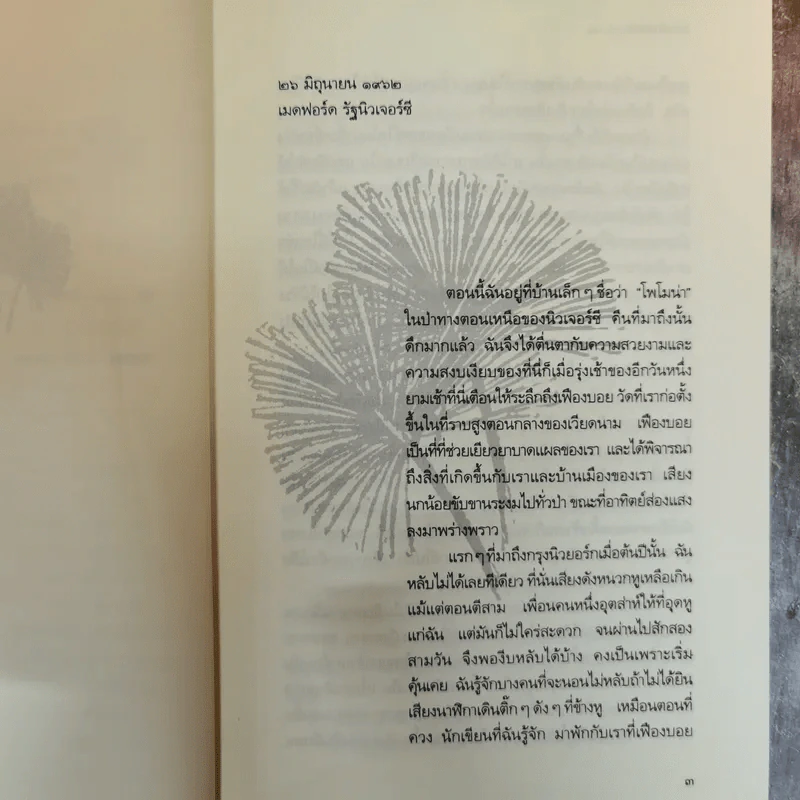 ๒๖ มิถุนายน ๑๙๖๒
เมดฟอร์ด รัฐนิวเจอร์ซี
ตอนนี้ฉันอยู่ที่บ้านเล็ก ๆ ชื่อว่า “โพโมน่า”
ในป่าทางตอนเหนือของนิวเจอร์ซี คืนที่มาถึงนั้น
ดึกมากแล้ว ฉันจึงได้ตื่นตากับความสวยงามและ
ความสงบเงียบของที่นี่ก็เมื่อรุ่งเช้าของอีกวันหนึ่ง
ยามเช้าที่นี่เตือนให้ระลึกถึงเฟืองบอย วัดที่เราก่อตั้ง
ขึ้นในที่ราบสูงตอนกลางของเวียดนาม เฟืองบอย
เป็นที่ที่ช่วยเยียวยาบาดแผลของเรา และได้พิจารณา
ถึงสิ่งที่เกิดขึ้นกับเราและบ้านเมืองของเรา เสียง
นกน้อยขับขานระงมไปทั่วป่า ขณะที่อาทิตย์ส่องแสง
ลงมาพร่างพราว
แรก ๆ ที่มาถึงกรุงนิวยอร์กเมื่อต้นปีนั้น ฉัน
หลับไม่ได้เลยทีเดียว ที่นั่นเสียงดังหนวกหูเหลือเกิน
แม้แต่ตอนตีสาม เพื่อนคนหนึ่งอุตส่าห์ให้ที่อุดหู
แก่ฉัน แต่มันก็ไม่ใคร่สะดวก จนผ่านไปสักสอง
สามวัน จึงพองีบหลับได้บ้าง คงเป็นเพราะเริ่ม
คุ้นเคย ฉันรู้จักบางคนที่จะนอนไม่หลับถ้าไม่ได้ยิน
เสียงนาฬิกาเดินติ๊ก ๆ ดัง ๆ ที่ข้างหู เหมือนตอนที่
ควง นักเขียนที่ฉันรู้จัก มาพักกับเราที่เฟืองบอย
๓